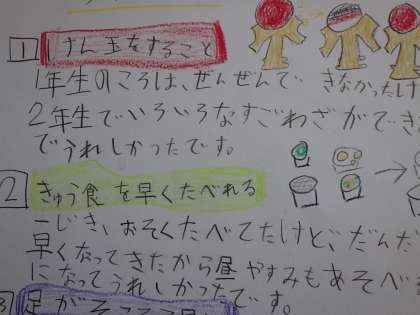 1 けん玉をすること
1年生のころは、ぜんぜんで きなかったけ
2年生でいろいろなすごわざができ
でうれしかったです。
2 きゅう食を早くたべれる
こじき、おそくたべてたけど、だんだ
早くなってきたから昼やすみもあそべ
になってうれしかったです。
3 足が